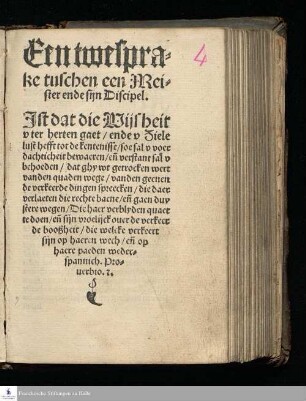 Een twespra-
ke tuschen een Mei-
ster ende sijn Discipel.
Ist dat die Wijsheit
v ter herten gaet / ende v Ziele
lust hefft tot de kentenisse / soe sal v voer
dachticheit bewaeren / eñ verstant sal v
behoeden / dat ghy wt getrocken wert
van den quaden wege / van den geenen
de verkeerde dingen spreecken / die daer
verlaeten die rechte baene / eñ gaen duy
stere wegen / Die haer verblyden quaet
te doen / eñ sijn vroelijck ouer de verkeer
de booßheit / die welcke verkeert
sijn op haeren wech / eñ op
haere paeden weder-
spannich. Pro-
uerbio. 2.
4
Franckesche Stiftungen zu Halle